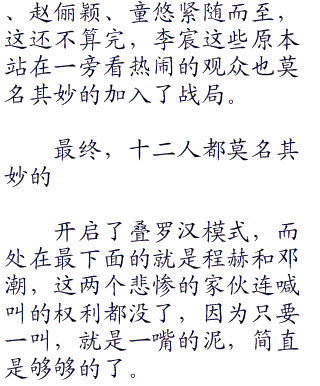 、赵俪颖、童悠紧随而至，
这还不算完，李宸这些原本
站在一旁看热闹的观众也莫
名其妙的加入了战局。
最终，十二人都莫名其
妙的
开启了叠罗汉模式，而
处在最下面的就是程赫和邓
潮，这两个悲惨的家伙连喊
叫的权利都没了，因为只要
一叫，就是一嘴的泥，简直
是够够的了。